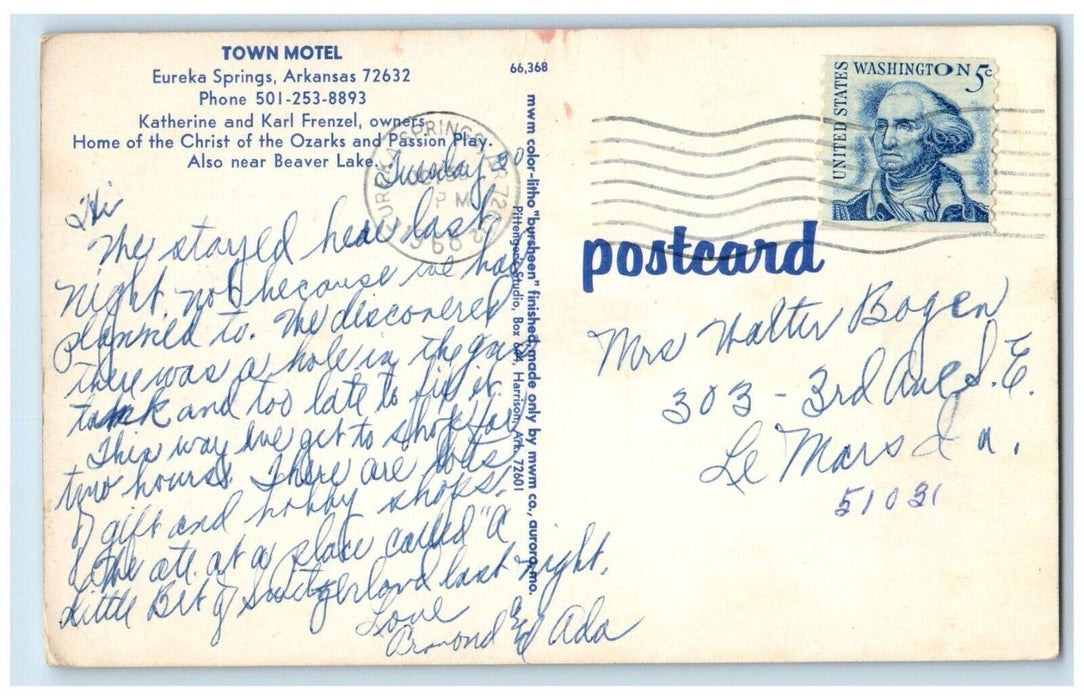 TOWN MOTEL
Eureka Springs, Arkansas 72632
Phone 501-253-8893
Katherine and Karl Frenzel, owners
Home of the Christ of the Ozarks and Passion Play.
Also near Beaver Lake.
66,368
EUREKA SPRINGS
PM
1968
UNITED STATES
WASHINGTON 5c
postcard
mwm color-litho "bursheen" finished, made only by mwm co., aurora, mo.
Pittenger Studio, Box Harrison, Ark. 72601
Tuesday
Hi
We stayed here last
night not because we had
planned to. We discovered
there was a hole in the gas
tank and too late to fix it.
This way we get to shop for
two hours. There are lots
of gift and hobby shops.
We ate at a place called "A
Little Bit of Switzerland last night.
Love
Ormond and Ada
Mrs Walter Bogen
303 - 3rd Ave S.E.
Le Mars Ia.
51031